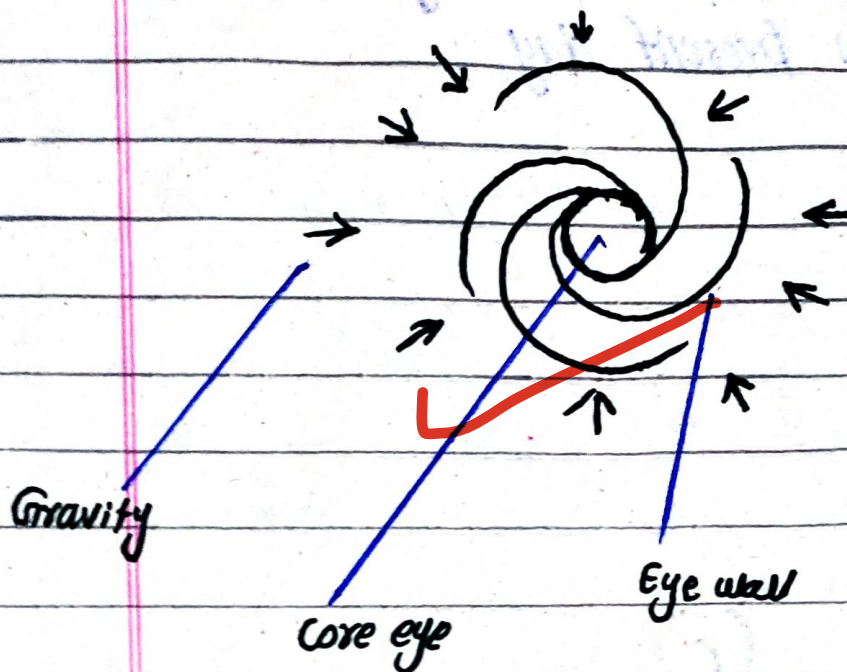 Gravity
Core eye
Eye wall